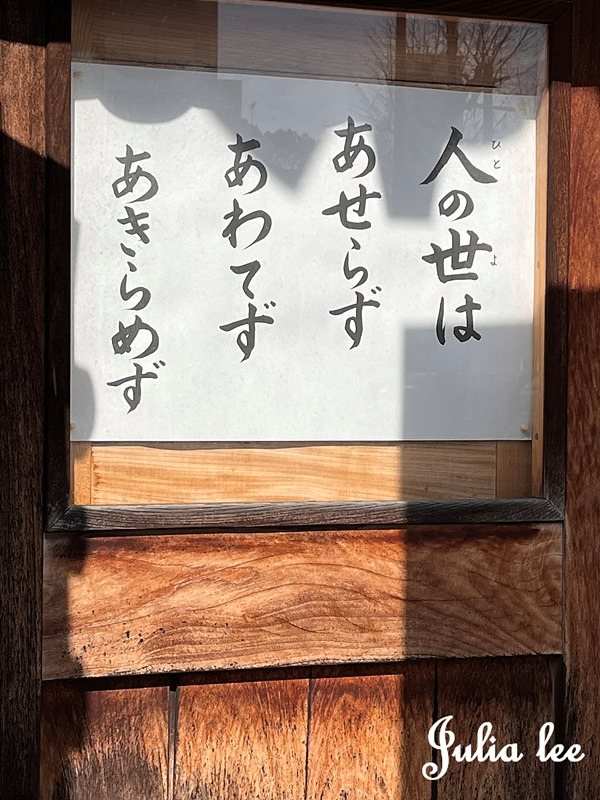 人の世は
ひと
よ
あせらず
あわてず
あきらめず
Julia lee